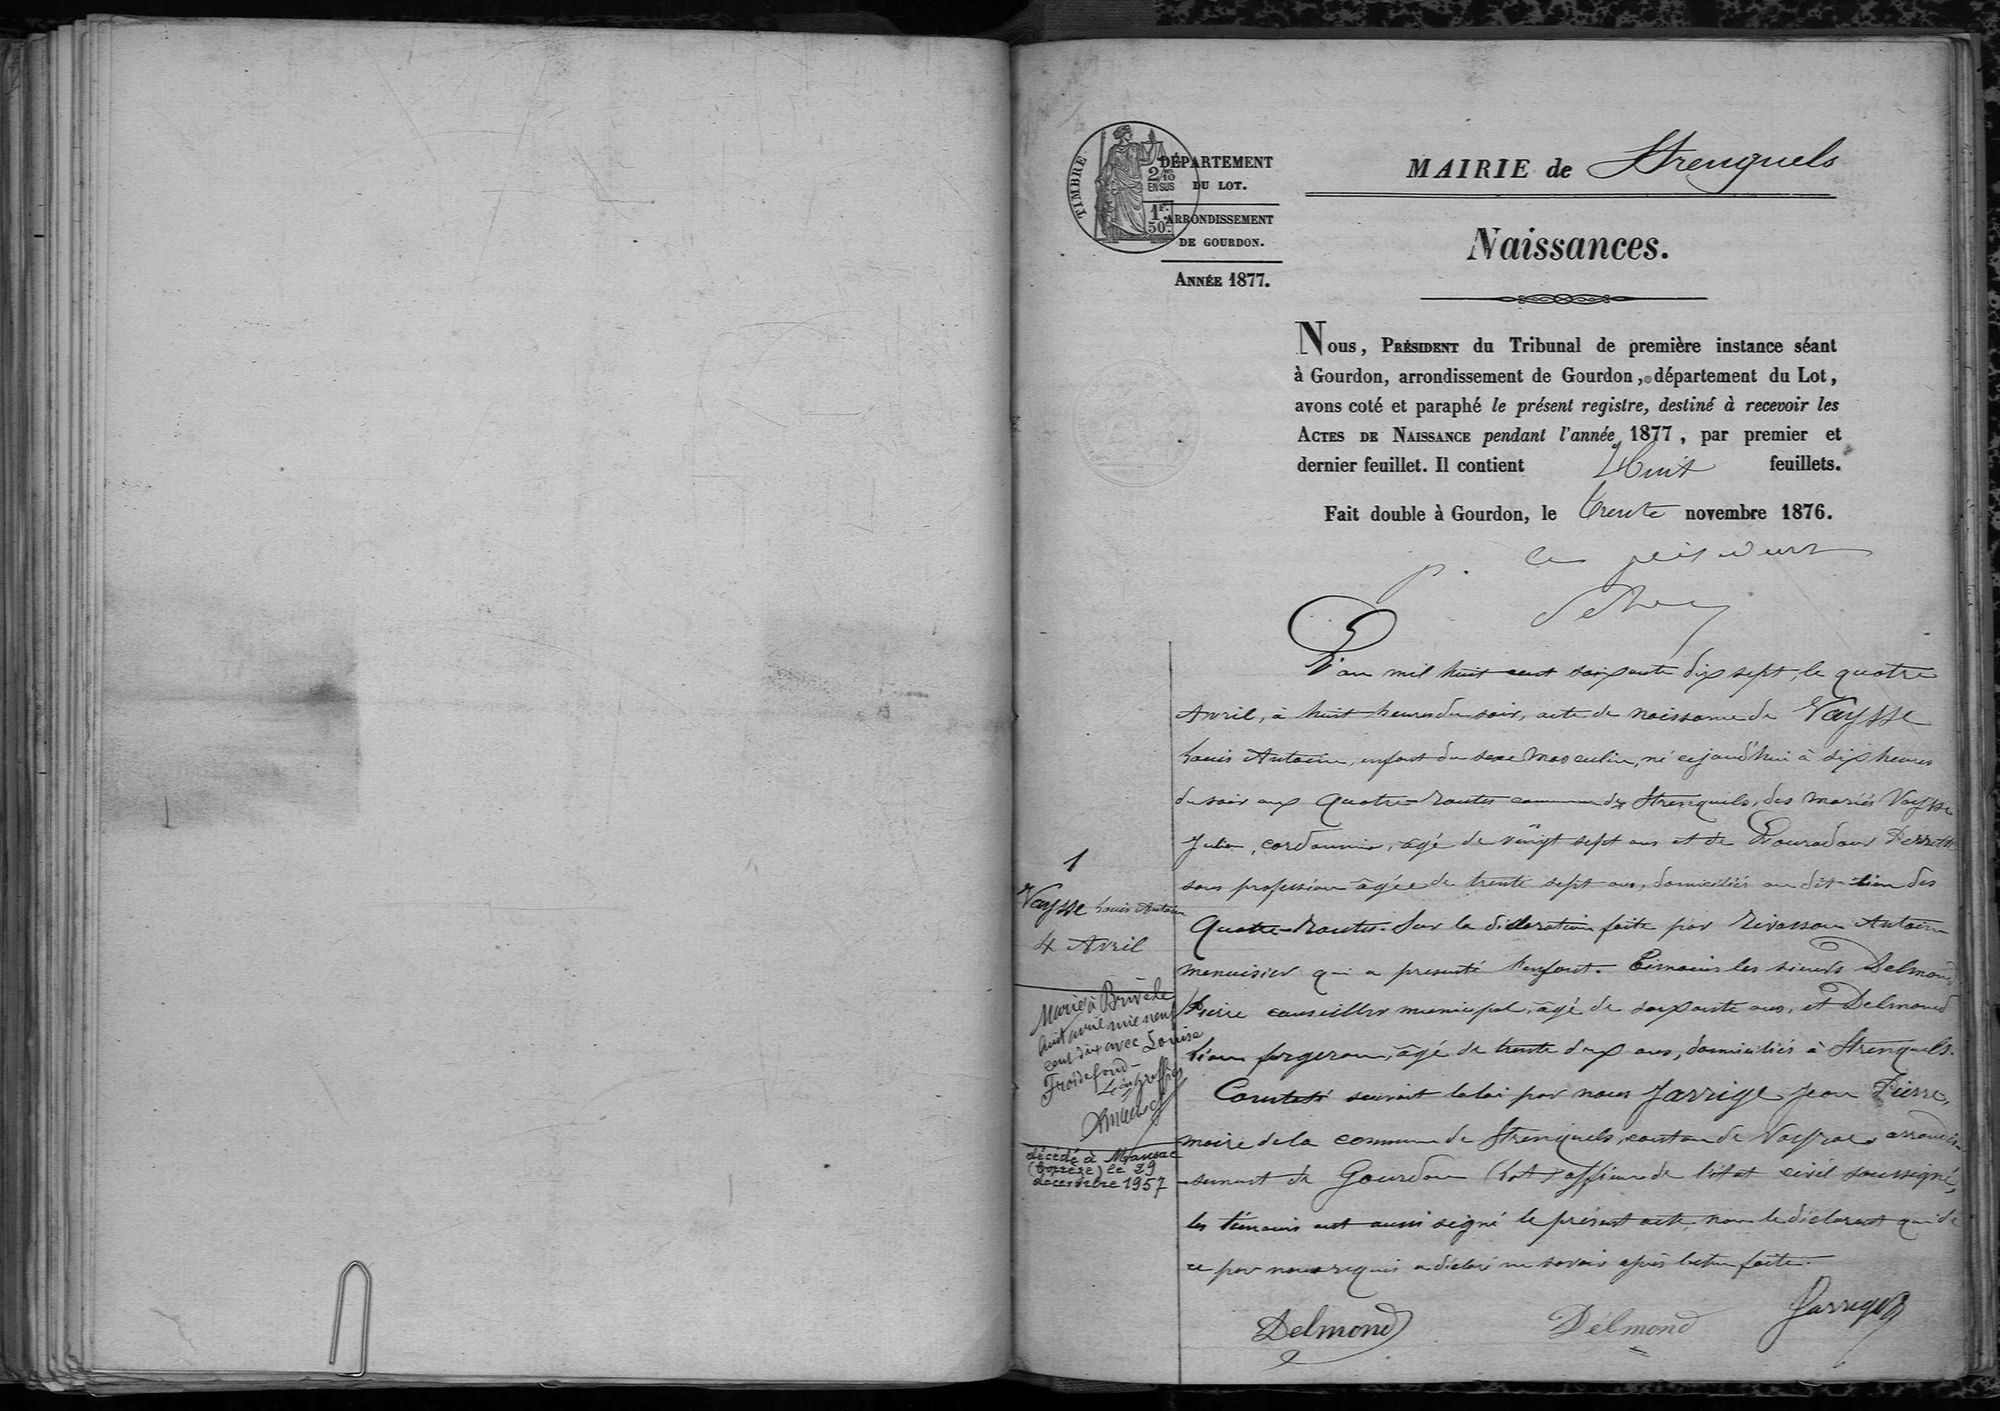 TIMBRE
2/10
EN SUS
1F.
50C.
DÉPARTEMENT
DU LOT.
ARRONDISSEMENT
DE GOURDON.
ANNÉE 1877.
MAIRIE de Strenquels
Naissances.
Nous, PRÉSIDENT du Tribunal de première instance séant
à Gourdon, arrondissement de Gourdon, département du Lot,
avons coté et paraphé le présent registre, destiné à recevoir les
ACTES DE NAISSANCE pendant l'année 1877, par premier et
dernier feuillet. Il contient Huit feuillets.
Fait double à Gourdon, le trente novembre 1876.
p. le président
L'an mil huit cent soixante dix sept, le quatre
Avril, à huit heures du soir, acte de naissance de Vaysse
Louis Antoine, enfant du sexe Masculin, né cejourd'hui à six heures
du soir aux Quatre-Routes commune de Strenquels, des mariés Vaysse
Julien, cordonnier, âgé de vingt sept ans et de
sans profession âgée de trente sept ans, domiciliés au dit lieu des
Quatre-Routes. Sur la déclaration faite par Antoine
menuisier qui a présenté l'enfant. Témoins les sieurs Delmond
Pierre conseiller municipal, âgé de soixante ans, et Delmond
forgeron, âgé de trente deux ans, domiciliés à Strenquels.
Constaté suivant la loi par nous Jarrige Jean Pierre,
maire de la commune de Strenquels, canton de Vayrac, arrondis-
-sement de Gourdon (Lot) officier de l'état civil soussigné,
les témoins ont aussi signé le présent acte, non le déclarant qui de
ce par nous requis a déclaré ne savoir après lecture faite.
Delmond
Delmond
Jarrige
1
Vaysse Louis Antoine
4 Avril
Marié à Brive le
huit avril mil neuf
cent dix avec Louise
Froidefond -
Le greffier
décédé à Mansac
(Corrèze) le 29
décembre 1957